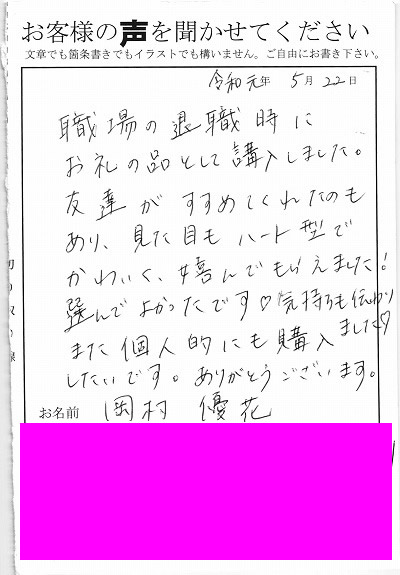 お客様の声を聞かせてください
文章でも箇条書きでもイラストでも構いません。ご自由にお書き下さい。
令和元年 5月 22日
職場の退職時に
お礼の品として購入しました。
友達がすすめてくれたのも
あり、見た目もハート型で
かわいく、嬉んでもらえました!
選んでよかったです♡気持ちも伝わり
ました♡
また個人的にも購入
したいです。ありがとうございます。
お名前 岡村 優花